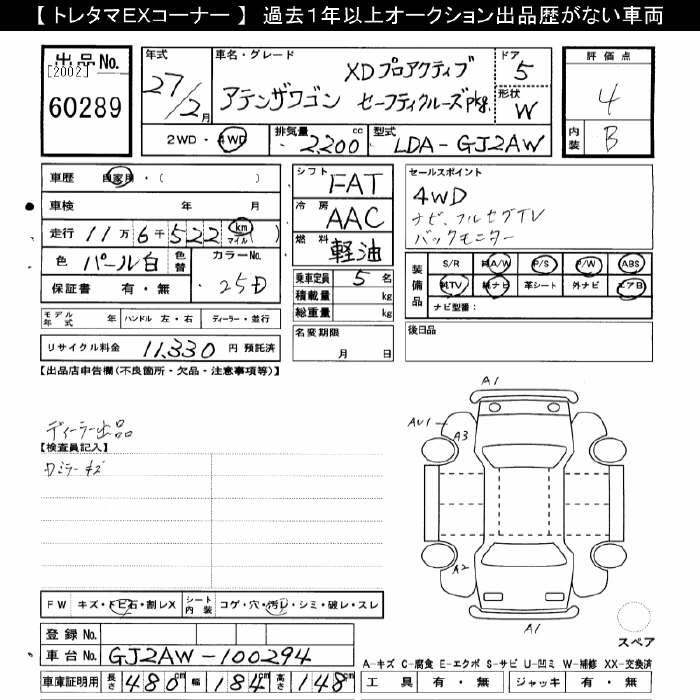 【 トレタマEXコーナー 】 過去1年以上オークション出品歴がない車両
出品No.
[2002]
60289
年式
27/2月
車名・グレード
XDプロアクティブ
アテンザワゴン セーフティクルーズpkg.
ドア
5
形状
W
評価点
4
内装
B
2WD・4WD
排気量 2,200 cc
型式 LDA-GJ2AW
車歴 自家用・( )
車検 年 月
走行 11万6千522 km マイル ( )
色 パール白 色替 カラーNo. 25D
保証書 有・無
モデル年式 年 ハンドル 左・右 ディーラー・並行
リサイクル料金 11,330 円 預託済
シフト FAT
冷房 AAC
燃料 軽油
乗車定員 5 名
積載量 kg
総重量 kg
名変期限
月 日
セールスポイント
4WD
ナビ、フルセグTV
バックモニター
装備品
S/R 純A/W P/S P/W ABS
純TV 純ナビ 革シート 外ナビ エアB
ナビ型番:
後日品
【出品店申告欄(不良箇所・欠品・注意事項等)】
ディーラー出品
【検査員記入】
ワミラーキズ
A1
AU1
A3
A2
A1
スペア
FW キズ・トビ石・割レX
シート内装 コゲ・穴・汚レ・シミ・破レ・スレ
登録No.
車台No. GJ2AW-100294
車庫証明用 長さ 480cm 幅 184cm 高さ 148cm
A-キズ C-腐食 E-エクボ S-サビ U-凹ミ W-補修 XX-交換済
工具 有・無 ジャッキ 有・無